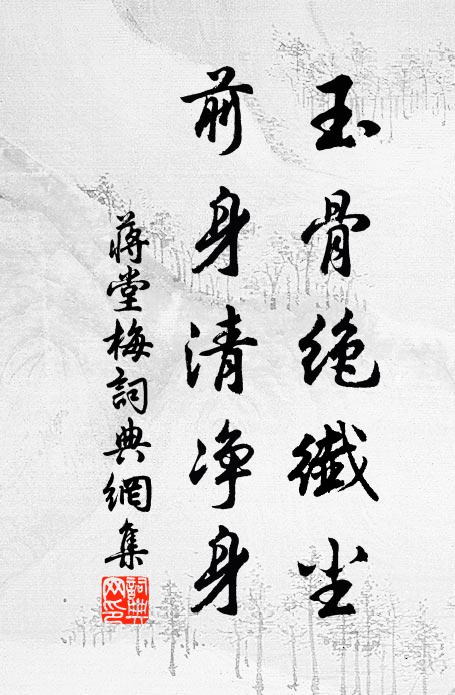 玉骨绝纖尘
前身清净身
蔣堂梅詞典網集